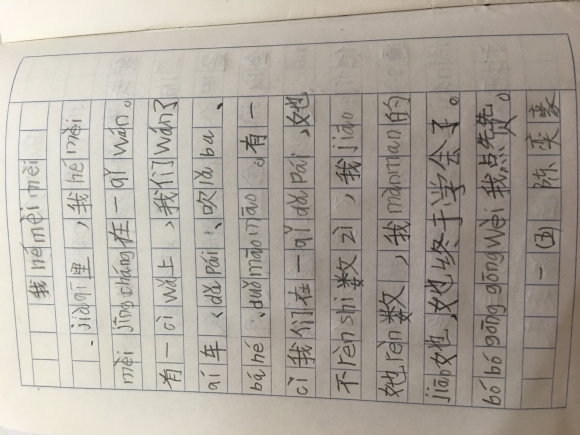 我hé mèi mei
jiàqī里，我hé mèi
mèi jīng cháng在一qǐ wán。
有一cì wǎ上，我们wán了
qí车、dǎ pái、吹lǎ ba、
bá hé、duǒ māo māo。有一
cì我们在一qǐ dǎ pái，她
不rèn shi数zì，我jiāo
她rèn数，我màn man的
jiāo她，她终于学会了。
bó bó gōng gōng wèi我点赞。
一(3) 陈奕豪